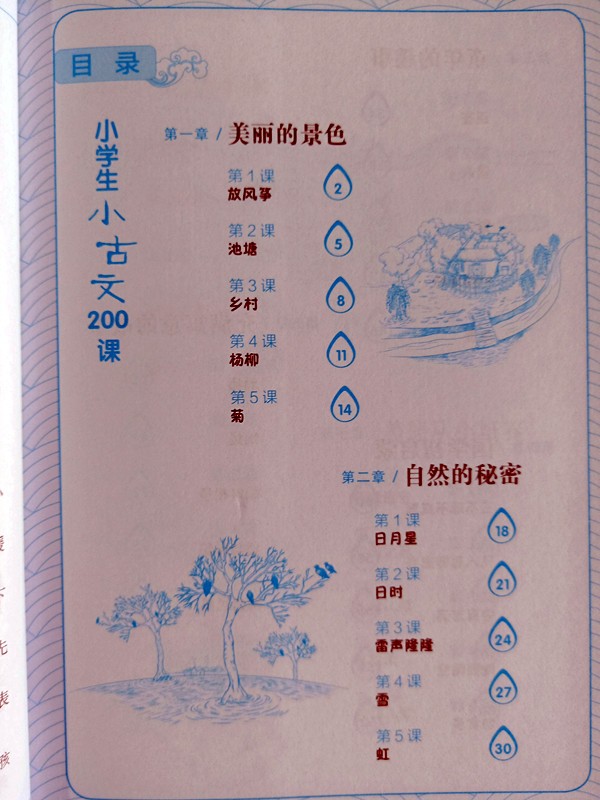 目录
小学生小古文200课
第一章 / 美丽的景色
第1课
放风筝
2
第2课
池塘
5
第3课
乡村
8
第4课
杨柳
11
第5课
菊
14
第二章 / 自然的秘密
第1课
日月星
18
第2课
日时
21
第3课
雷声隆隆
24
第4课
雪
27
第5课
虹
30
下
先
表
孩